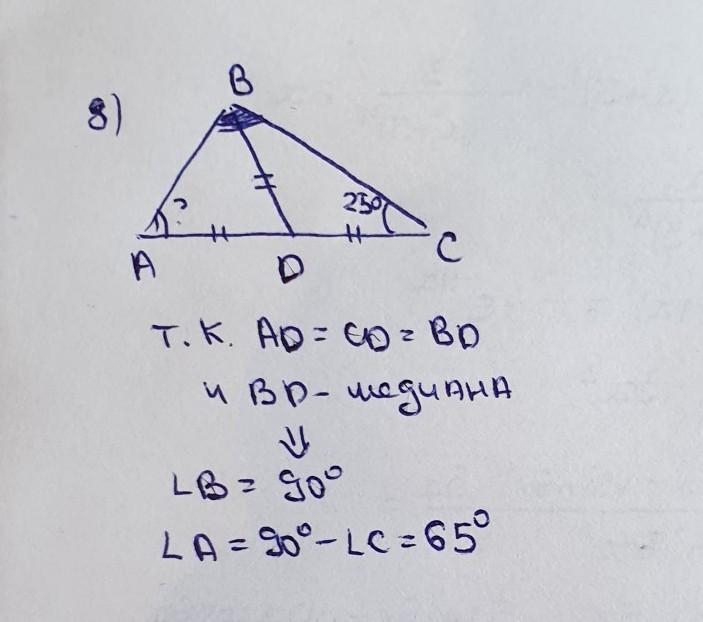 8)
B
?
25°
A
D
C
Т.К. AD = CD = BD
и BD - медиана
⇓
∠B = 90°
∠A = 90° - ∠C = 65°